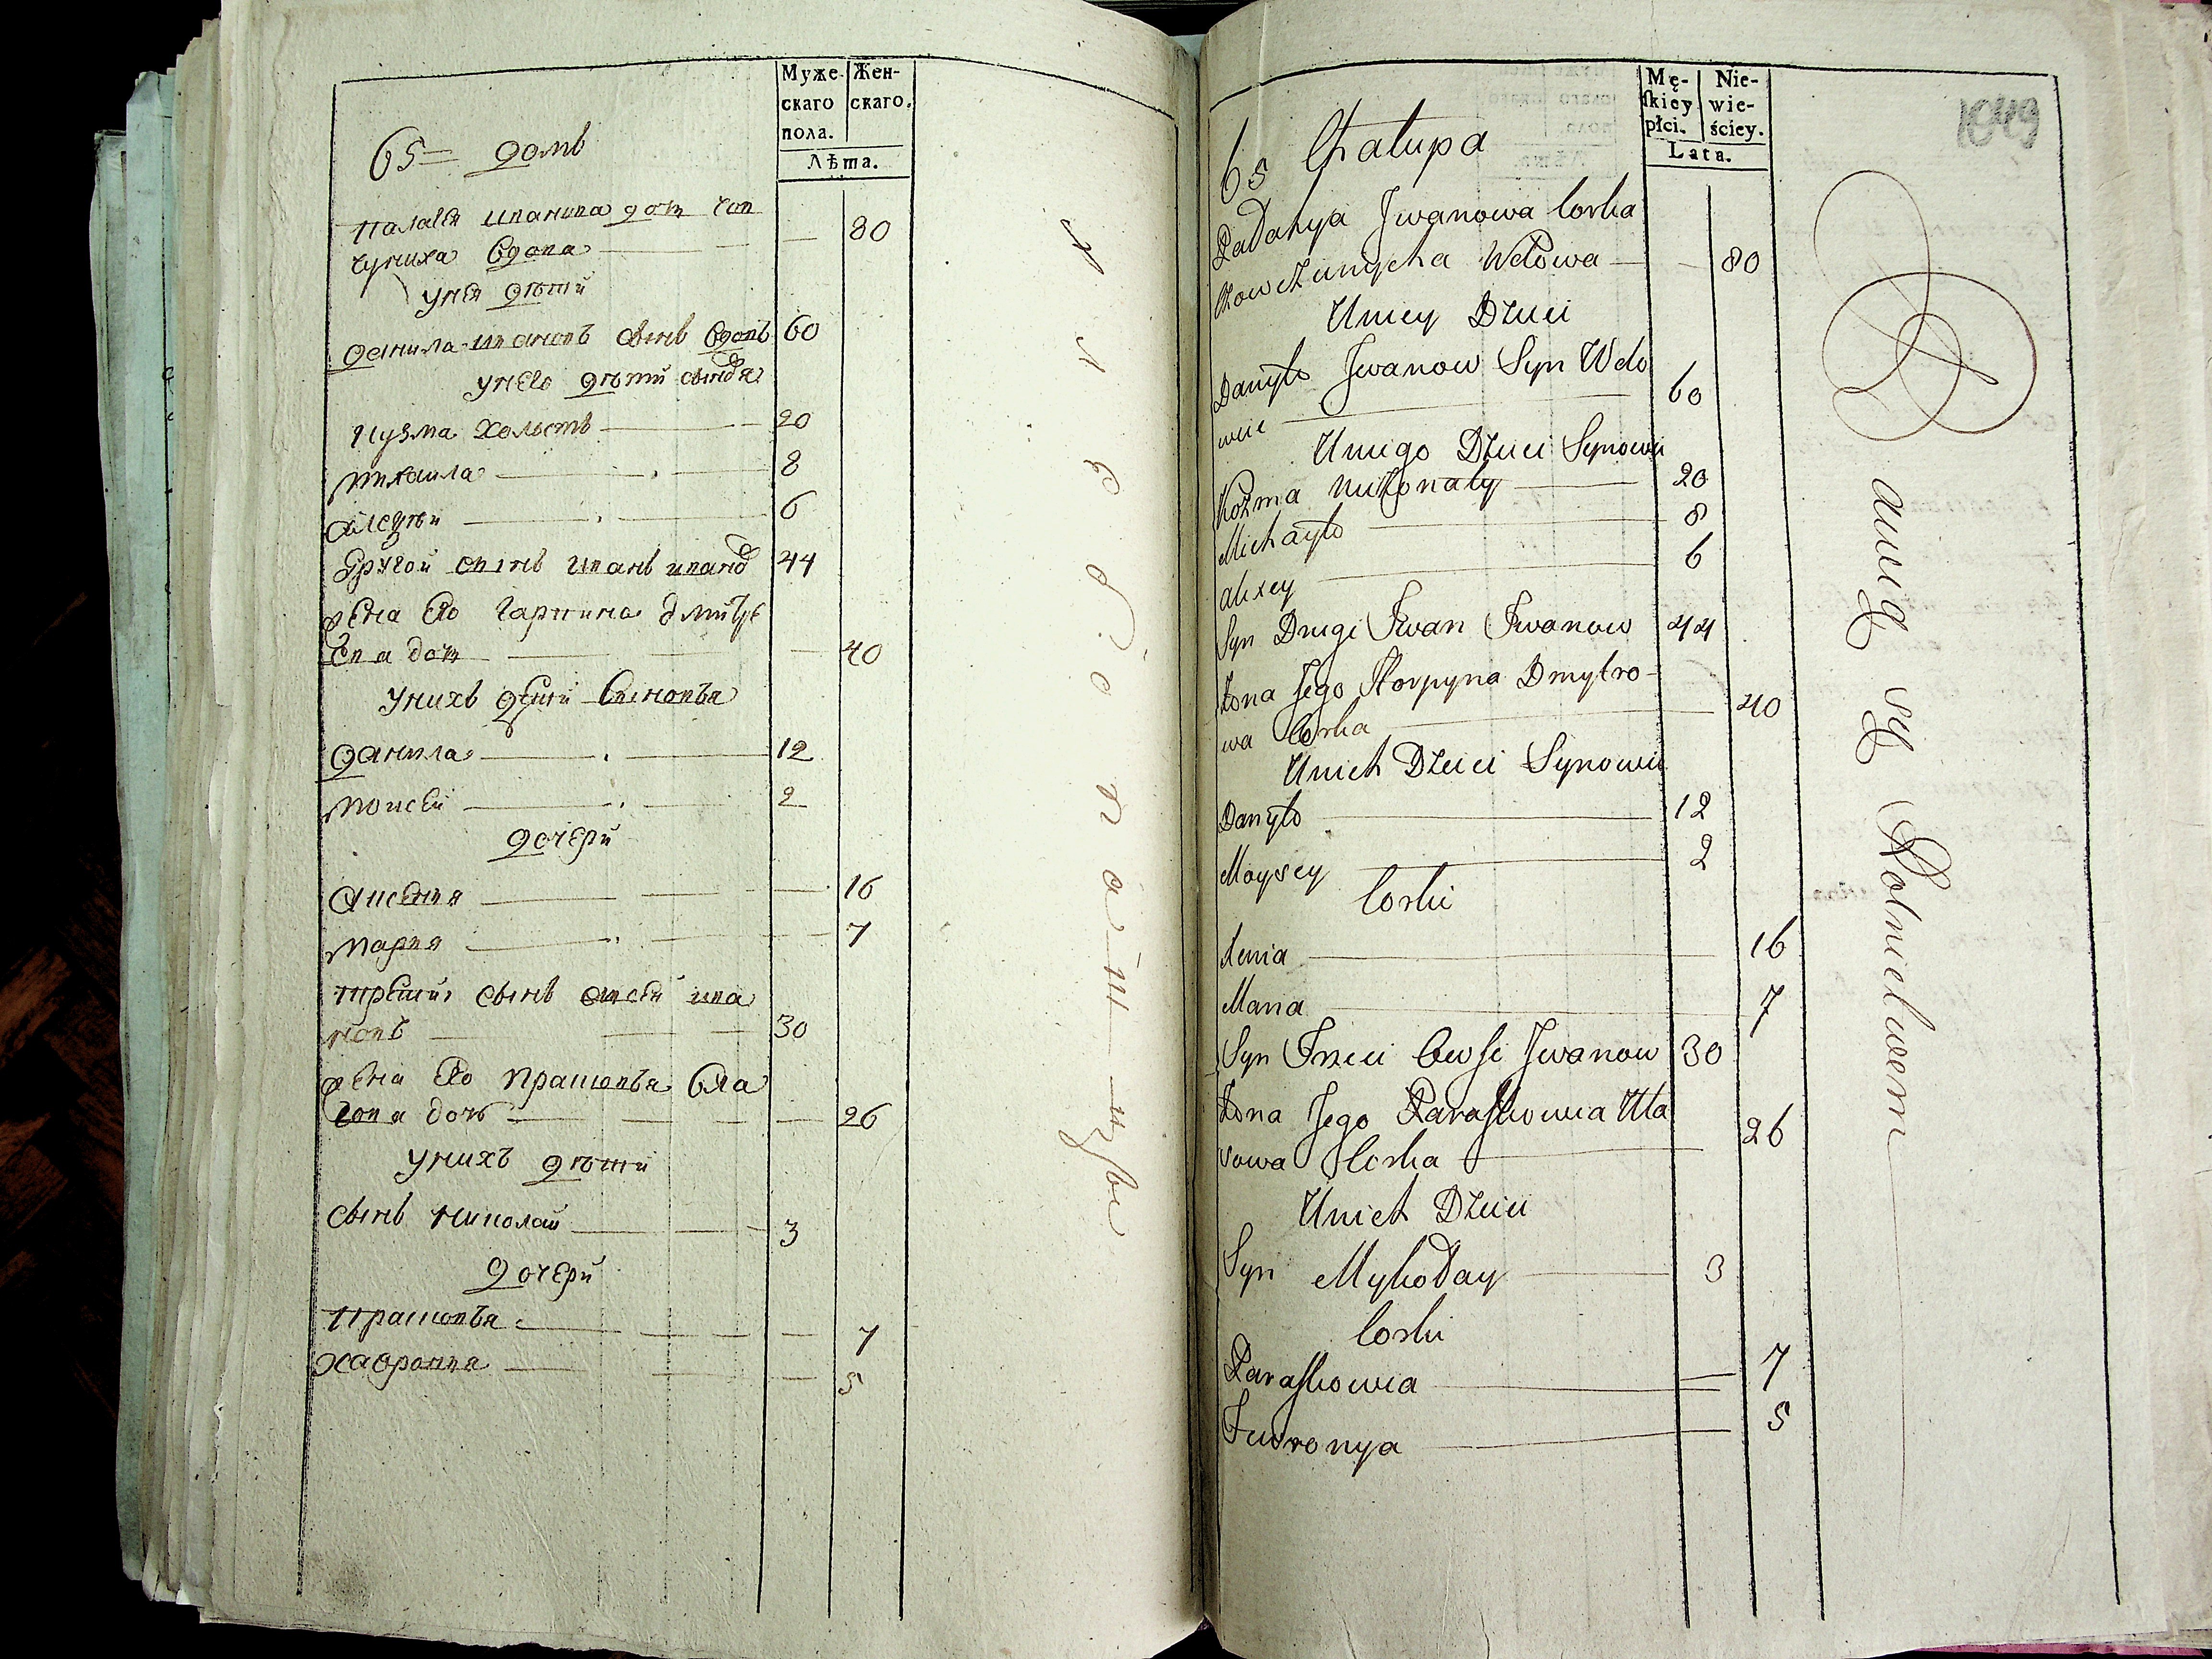 Муже-
скаго
пола.
Жен-
скаго.
Лѣта.
65 домъ
Палагея Иванова доч Гов
чуниха вдова — 80
У нея дѣти
Данила Ивановъ сынъ вдовъ 60
У него дѣти сыновя
Кузма холостъ — 20
Михаила — 8
Алеѯѣй — 6
Другой сынъ Иванъ Иванов 44
Жена Его Гарпина Дмитре
ва доч — 40
У нихъ дети Сыновъя
Данила — 12
Мойсей — 2
Дочери
Ксения — 16
Мария — 7
Третий сынъ Евсей Ива
новъ — 30
Жена Его Прасковъя Вла
сова доч — 26
У нихъ дѣти
Сынъ Николай — 3
Дочери
Прасковъя — 7
Хаврония — 5
Mę-
skiey
płci.
Nie-
wie-
ściey.
Lata.
1049
65 Chałupa
Pałahya Iwanowa Corka
Wdowa — 80
U niey Dzieci
Danyło Iwanow Syn Wdo
wiec — 60
U niego Dzieci Synowie
Kozma nieżonaty — 20
Michayło — 8
Alexey — 6
Syn Drugi Iwan Iwanow 44
Żona Jego Horpyna Dmytro-
wa Corka — 40
U nich Dzieci Synowie
Danyło — 12
Moysey — 2
Corki
Xenia — 16
Maria — 7
Syn Trzeci Owsi Iwanow 30
Żona Jego Paraskowia Wła
sowa Corka — 26
U nich Dzieci
Syn Mykołay — 3
Corki
Paraskowia — 7
Fwronya — 5
bawią się Rolnictwem